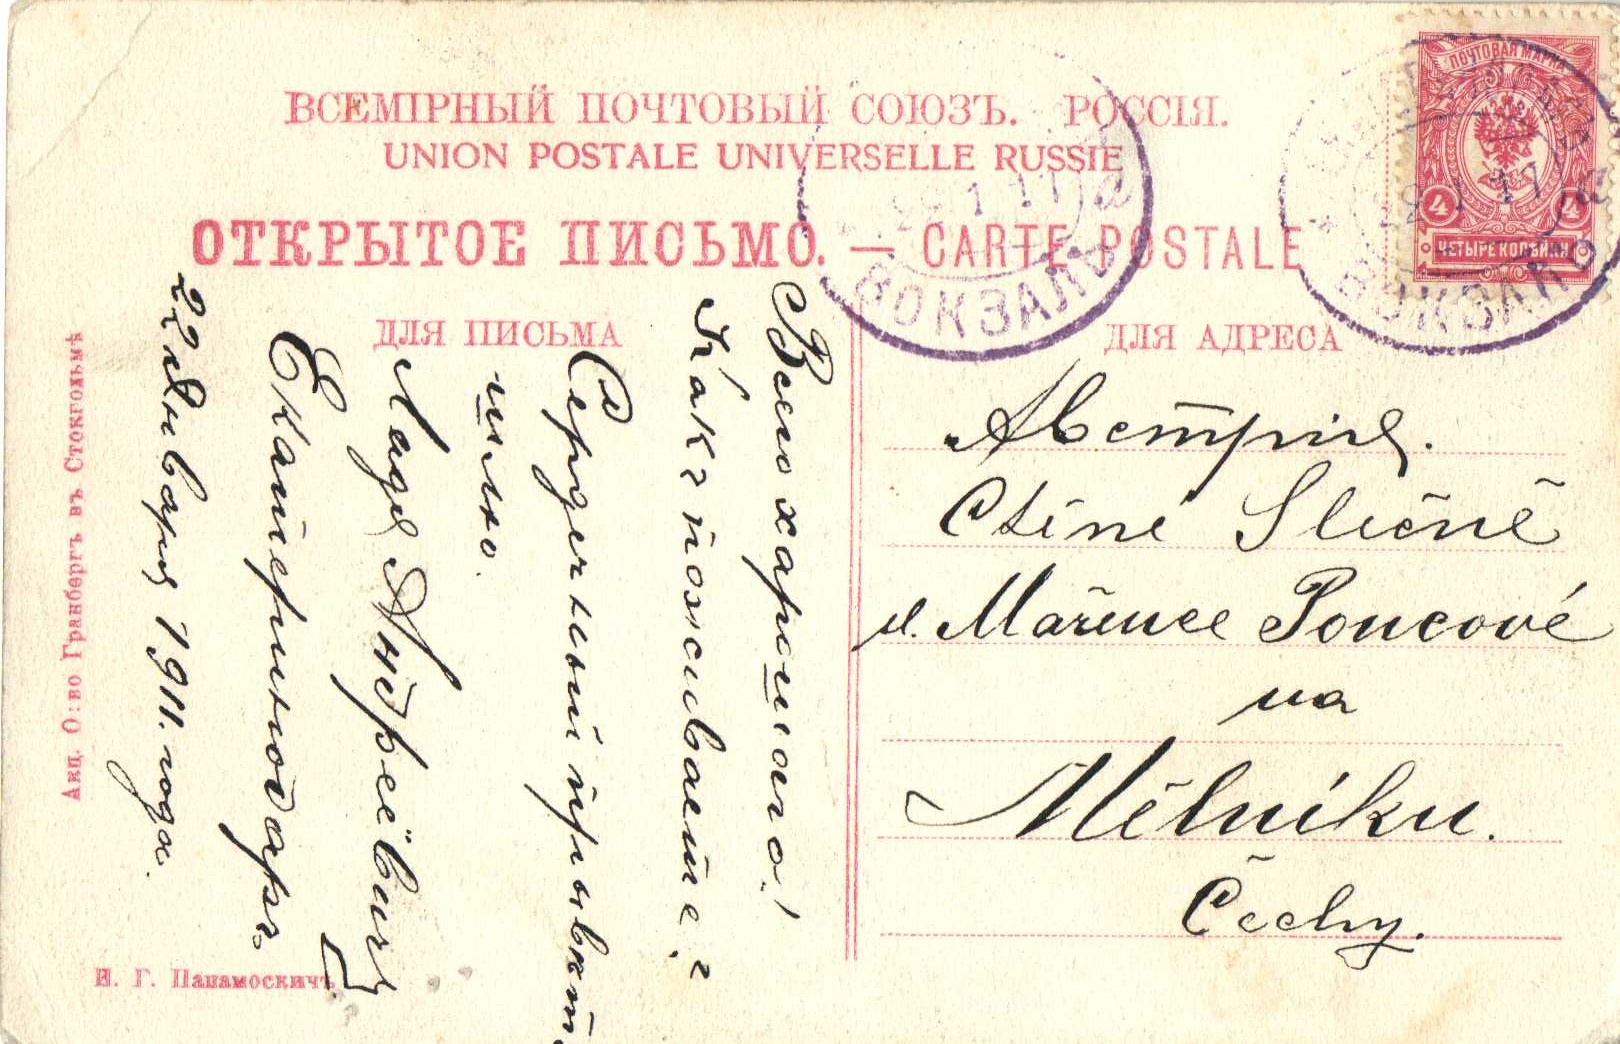 ВСЕМІРНЫЙ ПОЧТОВЫЙ СОЮЗЪ. РОССІЯ.
UNION POSTALE UNIVERSELLE RUSSIE
ОТКРЫТОЕ ПИСЬМО. — CARTE POSTALE
ДЛЯ ПИСЬМА
ДЛЯ АДРЕСА
ПОЧТОВАЯ МАРКА
4 4
ЧЕТЫРЕ КОПѢЙКИ
ВОКЗАЛЪ
ВОКЗАЛЪ
Всего харошаго!
Какъ поживаете,?
Сердечный привѣт
шлю.
Ладя Андреевич
Екатеринодаръ.
22 Января 1911. года.
Австрія.
Ctěné Slečně
sl. Mařence Poncově
na
Mělníku.
Čechy.
Акц. О:во Гранбергъ въ Стокгольмѣ
И. Г. Папамоскичъ.